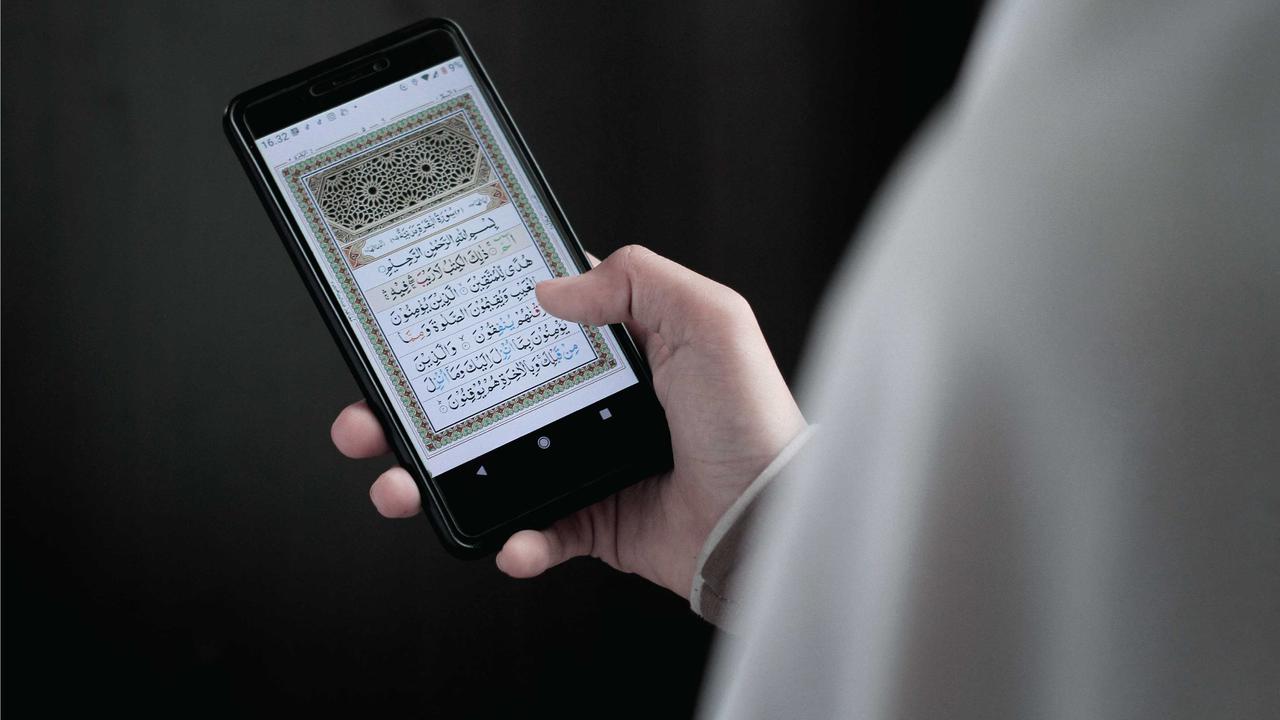 16.32 9%
سُوْرَةُ الْبَقَرَةِ مَدَنِيَّةٌ
بِسْمِ اللهِ الرَّحْمٰنِ الرَّحِيْمِ
الٓمّٓ ذٰلِكَ الْكِتٰبُ لَا رَيْبَ فِيْهِ
هُدًى لِّلْمُتَّقِيْنَ الَّذِيْنَ يُؤْمِنُوْنَ
الْغَيْبِ وَيُقِيْمُوْنَ الصَّلٰوةَ وَمِمَّا
قْنٰهُمْ يُنْفِقُوْنَ وَالَّذِيْنَ
يُؤْمِنُوْنَ بِمَآ اُنْزِلَ اِلَيْكَ وَمَآ اُنْزِلَ
مِنْ قَبْلِكَ وَبِالْاٰخِرَةِ هُمْ يُوْقِنُوْنَ